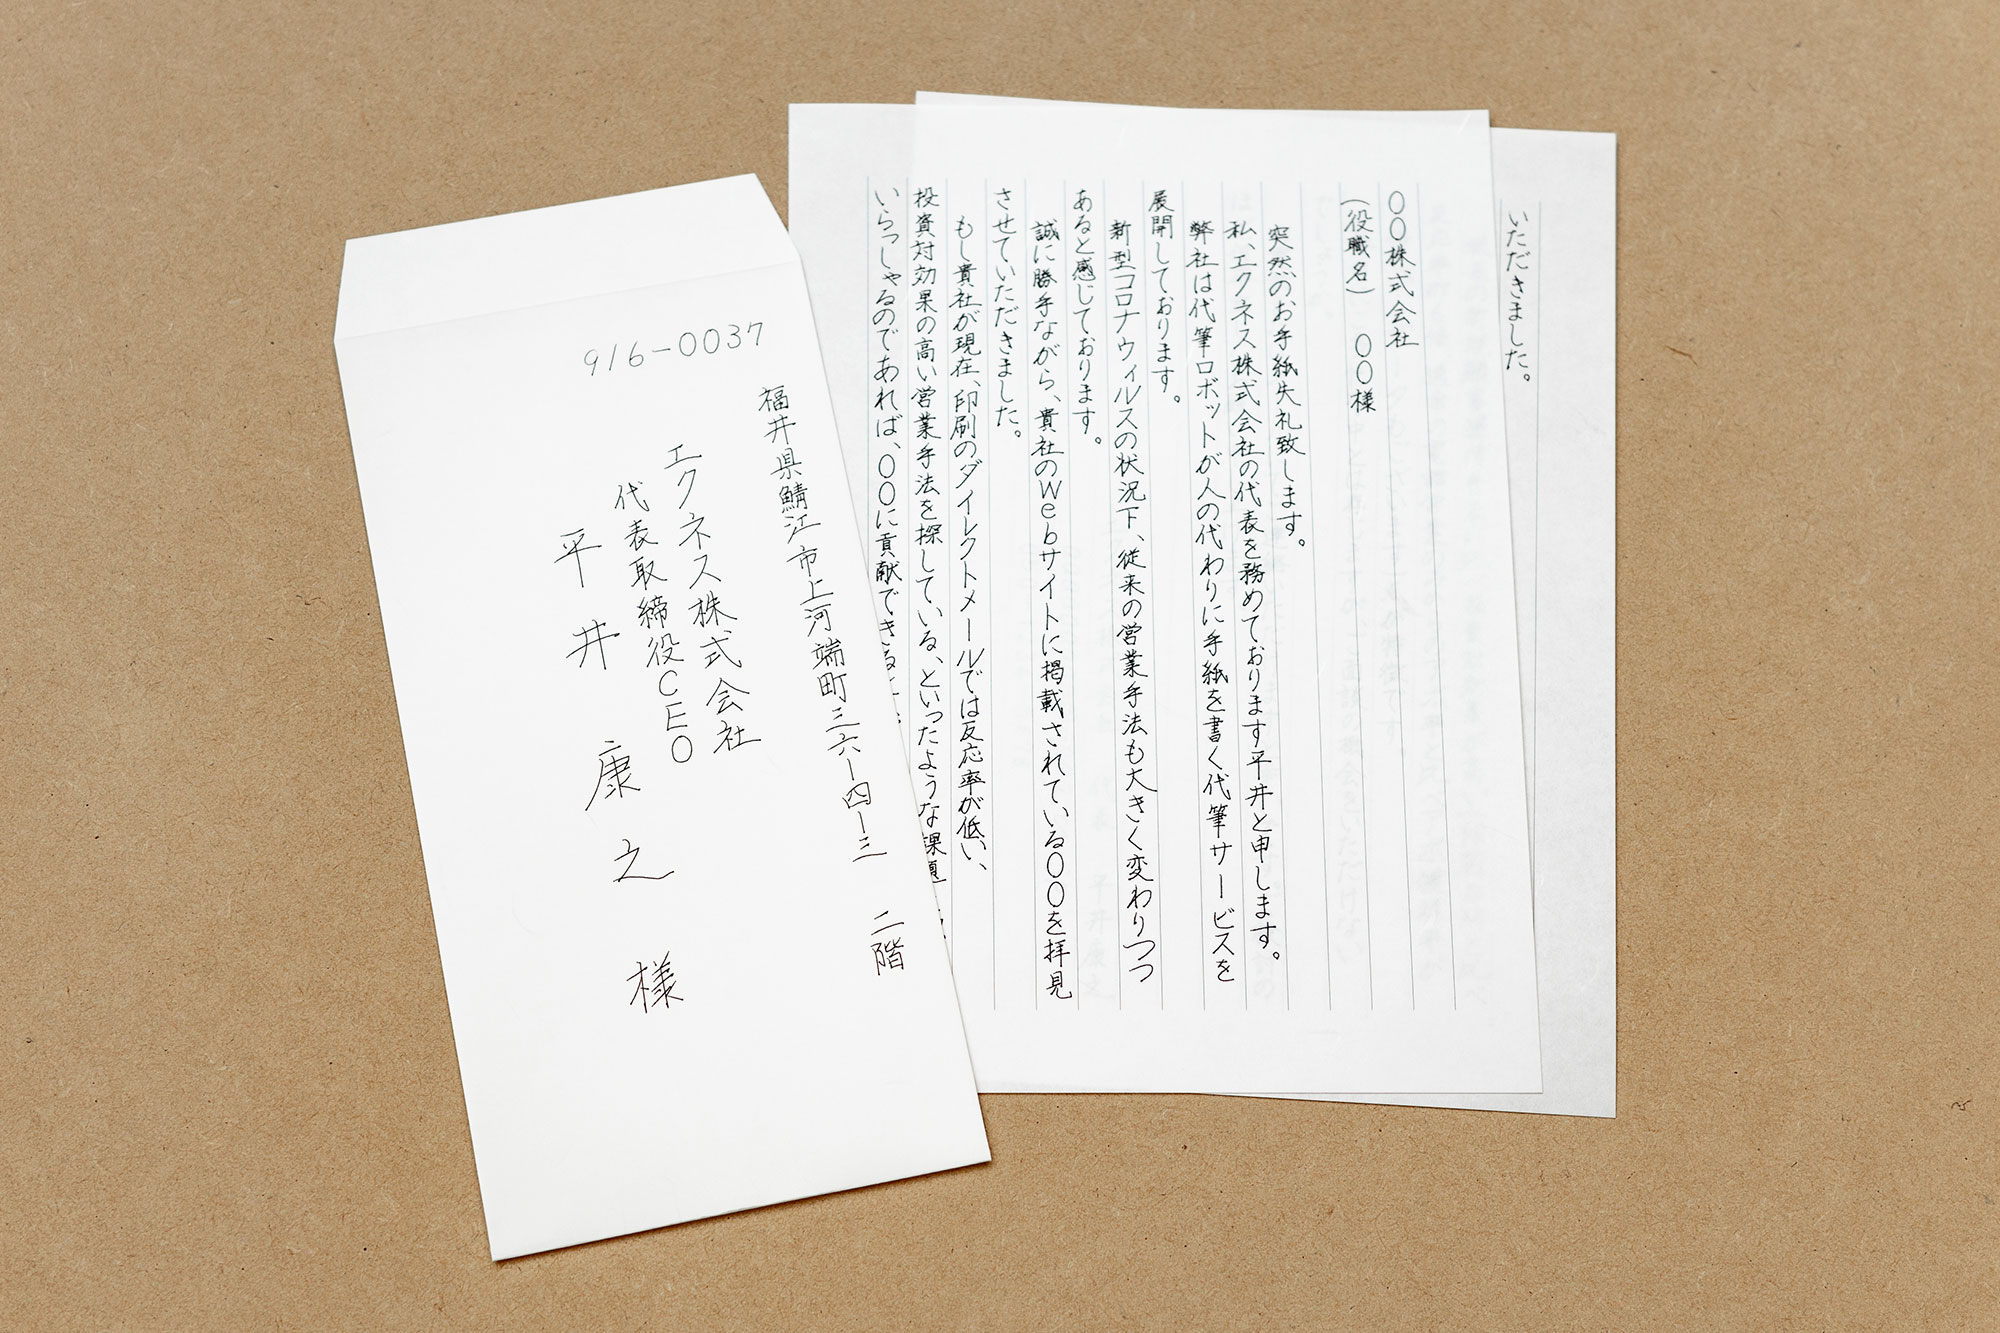 916-0037
福井県鯖江市上河端町三六ー四ー三 二階
エクネス株式会社
代表取締役CEO
平井康之 様
〇〇株式会社
(役職名) 〇〇様
突然のお手紙失礼致します。
私、エクネス株式会社の代表を務めております平井と申します。
弊社は代筆ロボットが人の代わりに手紙を書く代筆サービスを
展開しております。
新型コロナウィルスの状況下、従来の営業手法も大きく変わりつつ
あると感じております。
誠に勝手ながら、貴社のWebサイトに掲載されている〇〇を拝見
させていただきました。
もし貴社が現在、印刷のダイレクトメールでは反応率が低い、
投資対効果の高い営業手法を探している、といったような課題
いらっしゃるのであれば、〇〇に貢献できる
いただきました。